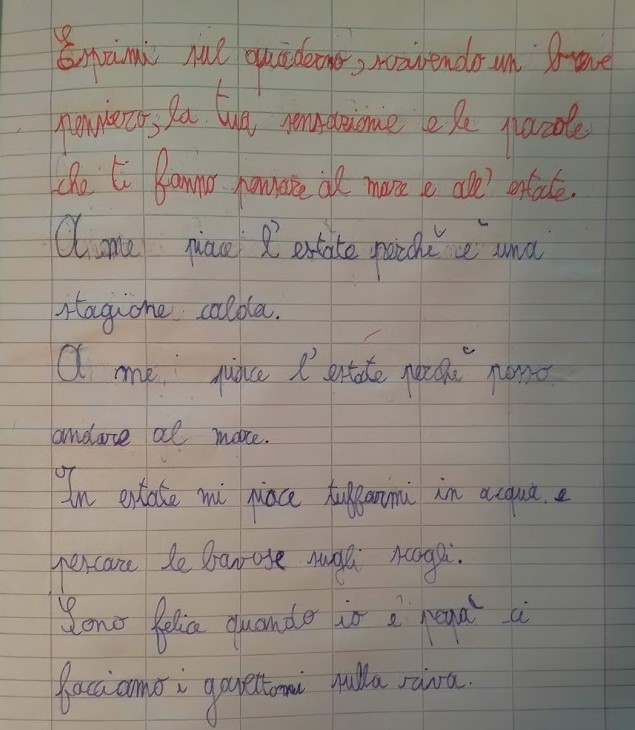 Esprimi sul quaderno, scrivendo un breve
pensiero, la tua sensazionie e le parole
che ti fanno pensare al mare e all' estate.
A me piace l' estate perchè è una
stagione calda.
A me piace l' estate perchè posso
andare al mare.
In estate mi piace tuffarmi in acqua e
pescare le bavose sugli scogli.
Sono felice quando io e papà ci
facciamo i gavettonni sulla riva.